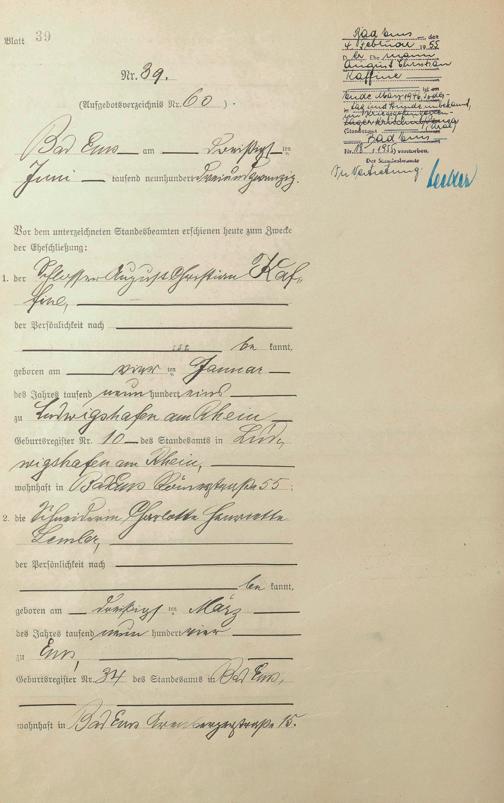 Blatt 39
Nr. 39.
(Aufgebotsverzeichnis Nr. 60).
Bad Ems am Dreißigsten
Juni tausend neunhundert dreiundzwanzig.
Vor dem unterzeichneten Standesbeamten erschienen heute zum Zwecke
der Eheschließung:
1. der Schlosser August Christian Kaf-
fine,
der Persönlichkeit nach
be kannt,
geboren am vierten Januar
des Jahres tausend neunhundert eins
zu Ludwigshafen am Rhein
Geburtsregister Nr. 10 des Standesamts in Lud-
wigshafen am Rhein,
wohnhaft in Bad Ems Römerstraße 55;
2. die Schneiderin Charlotte Henriette
der Persönlichkeit nach
be kannt,
geboren am dreißigsten März
des Jahres tausend neun hundert vier
zu Ems,
Geburtsregister Nr. 34 des Standesamts in Bad Ems,
wohnhaft in Bad Ems 15.
Bad Ems, den
4. Februar 1955
D Ehemann
August Christian
Kaffine
ist am
Ende März 1946
Tag und Stunde unbekannt,
Standesamt
Bad Ems
1955) verstorben.
Der Standesbeamte
In Vertretung: